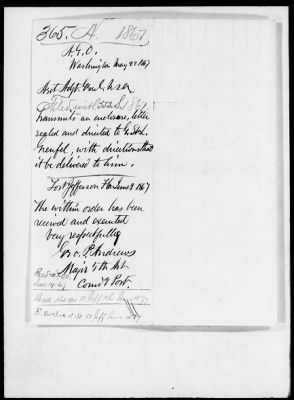 365. A. 1867
A.G.O.
Washington May 22 1867
Asst Adjt Genl, USA
transmits an enclosure, letter
sealed and directed to G. St L.
Grenfel, with directions that
it be delivered to him.
Fort Jefferson Fla June 9 1867
The within order has been
received and executed
Very respectfully
Geo. P. Andrews
Major 5th Art
Comdg Post.